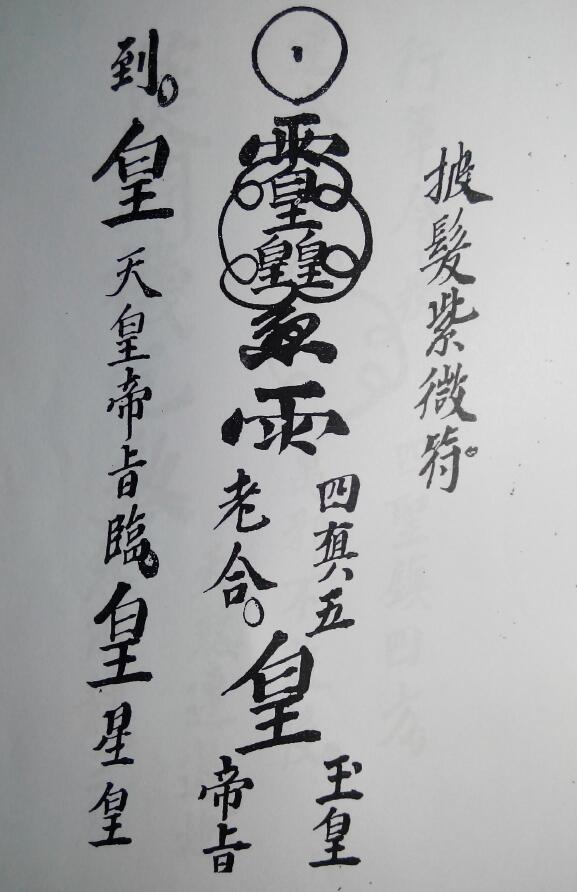 披髮紫微符。
雨皇
皇皇
雨
四真五
老合。
皇
玉皇
帝旨
到。
皇
天皇帝旨臨。
皇
星皇